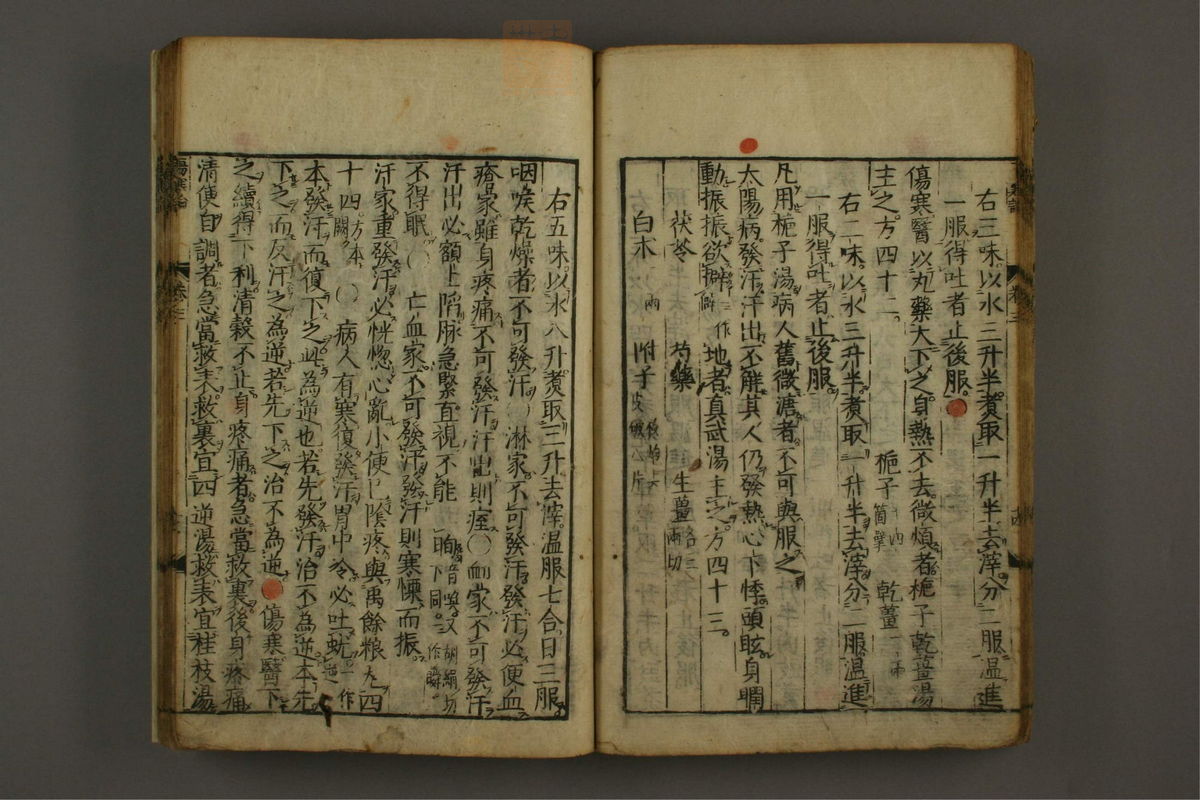 右三味以水三升半煮取一升半去滓分二服温進
一服得吐者止後服
傷寒醫以丸藥大下之身熱不去微煩者梔子乾薑湯
主之方四十二
梔子 乾薑
右二味以水三升半煮取一升半去滓分二服温進
一服得吐者止後服
凡用梔子湯病人舊微溏者不可與服之
太陽病發汗汗出不解其人仍發熱心下悸頭眩身瞤
動振振欲擗地者真武湯主之方四十三
茯苓 芍藥 生薑各三兩切
白朮 兩 附子
右五味以水八升煮取三升去滓温服七合日三服
咽喉乾燥者不可發汗〇淋家不可發汗發汗必便血
瘡家雖身疼痛不可發汗汗出則痓〇衂家不可發汗
汗出必額上陷脉急緊直視不能眴
不得眠〇亡血家不可發汗發汗則寒慄而振
汗家重發汗必恍惚心亂小便已陰疼與禹餘粮丸四
十四方本闕〇病人有寒復發汗胃中冷必吐蚘一作逆
本發汗而復下之此為逆也若先發汗治不為逆本先
下之而反汗之為逆若先下之治不為逆 傷寒醫下
之續得下利清穀不止身疼痛者急當救裏後身疼痛
清便自調者急當救表救裏宜四逆湯救表宜桂枝湯